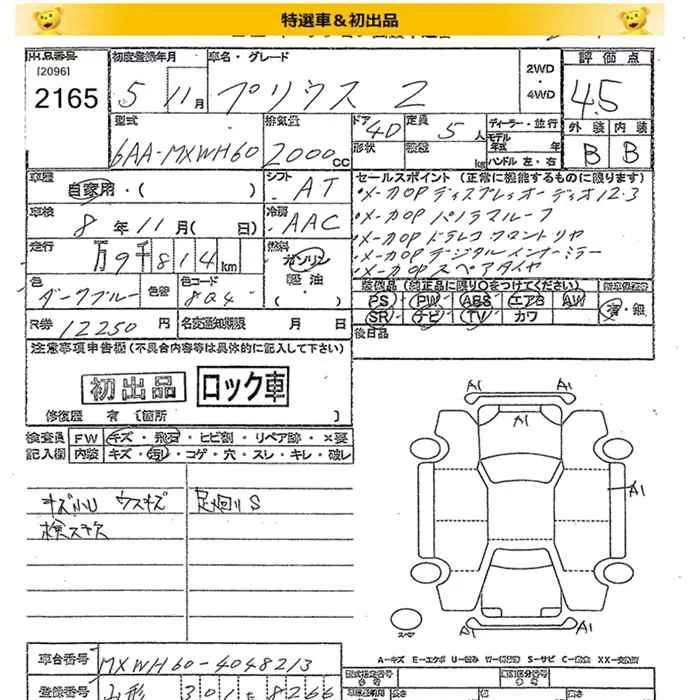 特選車＆初出品
出品番号 初度登録年月 車名・グレード 2WD・4WD 評価点
[2096]
2165 5 11月 プリウス Z 4.5
型式 排気量 ドア 定員 ディーラー・並行 外装 内装
6AA-MXWH60 2000cc 4D 5人 モデル年式 年 B B
形状 積載 kg ハンドル 左・右
車歴 自家用・( ) シフト AT セールスポイント (正常に機能するものに限ります)
・メーカOP ディスプレイオーディオ12.3
車検 8年11月( 日) 冷房 AAC ・メーカOP パノラマルーフ
・メーカOP ドラレコ フロントリヤ
走行 万9千814km 燃料 ガソリン ・メーカOP デジタルインナーミラー
軽油 ・( ) ・メーカOP スペアタイヤ
色 ダークブルー 色替 色コード 8Q4 装備品 (純正品に限り○をつけてください)
PS PW ABS エアB AW
R券 12250円 名変通知期限 月 日 SR ナビ TV カワ 有・無
注意事項申告欄(不具合内容等は具体的に記入して下さい) 後日品
初出品 ロック車
修復歴 有 [箇所 ]
検査員 FW キズ・飛石・ヒビ割・リペア跡・×要
記入欄 内装 キズ・汚レ・コゲ・穴・スレ・キレ・破レ
キズ小U ウスキズ 足廻りS
検スキズ
A1 A1
A1
A1
A1 A1
スペア
A-キズ E-エクボ U-凹み W-補修跡 S-サビ C-腐食 XX-交換済
車台番号 MXWH60-4048213
登録番号 山形 301 8266